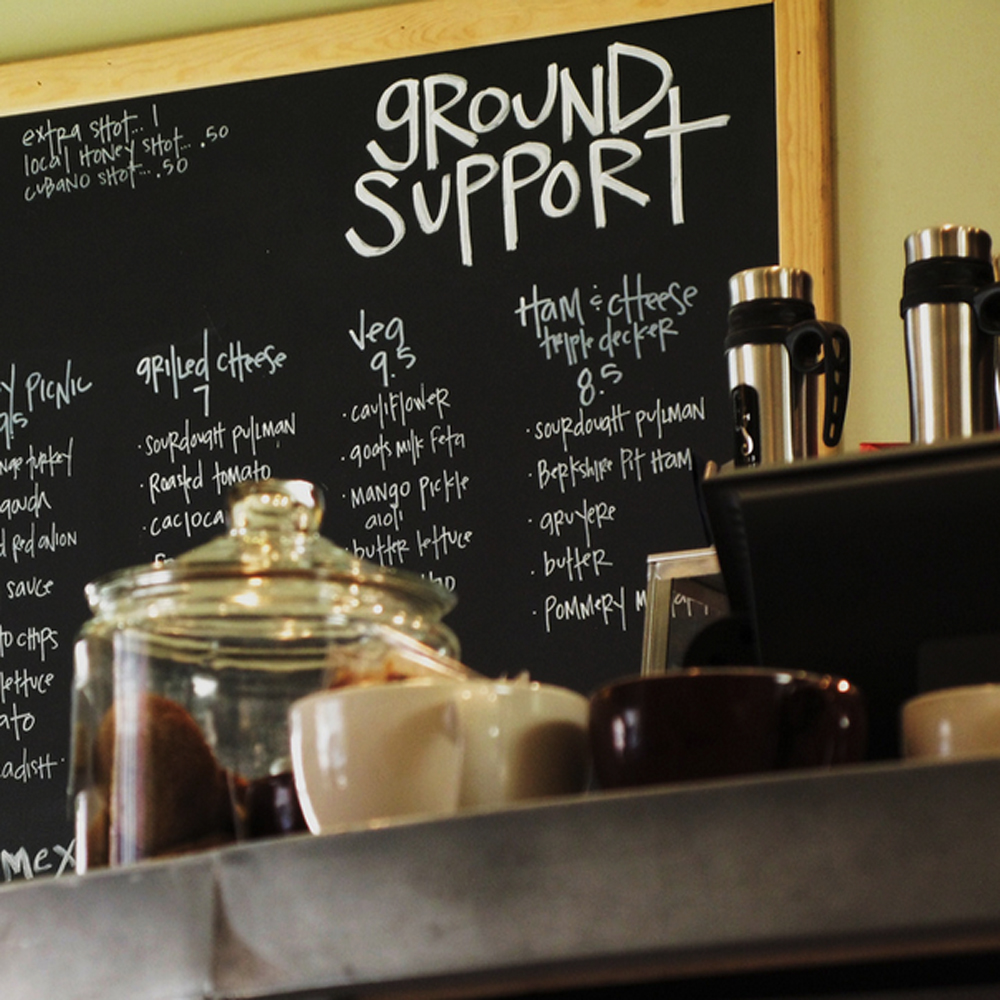 extra shot... 1
local honey shot... .50
cubano shot... .50
GROUND
SUPPORT
PICNIC
9.5
turkey
red onion
sauce
chips
lettuce
grilled cheese
7
· sourdough pullman
· Roasted tomato
Veg
9.5
· cauliflower
· goats milk feta
· mango pickle
aioli
· butter lettuce
Ham & cheese
triple decker
8.5
· sourdough pullman
· Berkshire Pit Ham
· gruyere
· butter
· Pommery